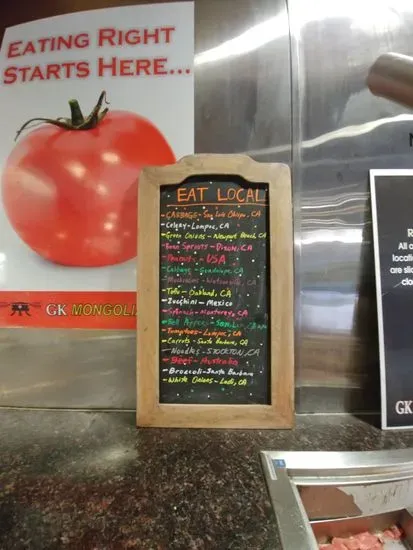 EATING RIGHT
STARTS HERE...
GK MONGOLI
EAT LOCAL
- CABBAGE - San Luis Obispo, CA
- Celery - Lompoc, CA
- Green Onions - Newport Beach, CA
- Bean Sprouts - Dixon, CA
- Peanuts - USA
- Cabbage - Guadalupe, CA
- Mushrooms - Watsonville, CA
- Tofu - Oakland, CA
- Zucchini - Mexico
- Spinach - Monterey, CA
- Bell Peppers - San Luis Obispo
- Tomatoes - Lompoc, CA
- Carrots - Santa Barbara, CA
- Noodles - STOCKTON, CA
- Beef - Australia
- Broccoli - Santa Barbara
- White Onions - Lodi, CA
R
All o
locatio
are slic
clo
GK